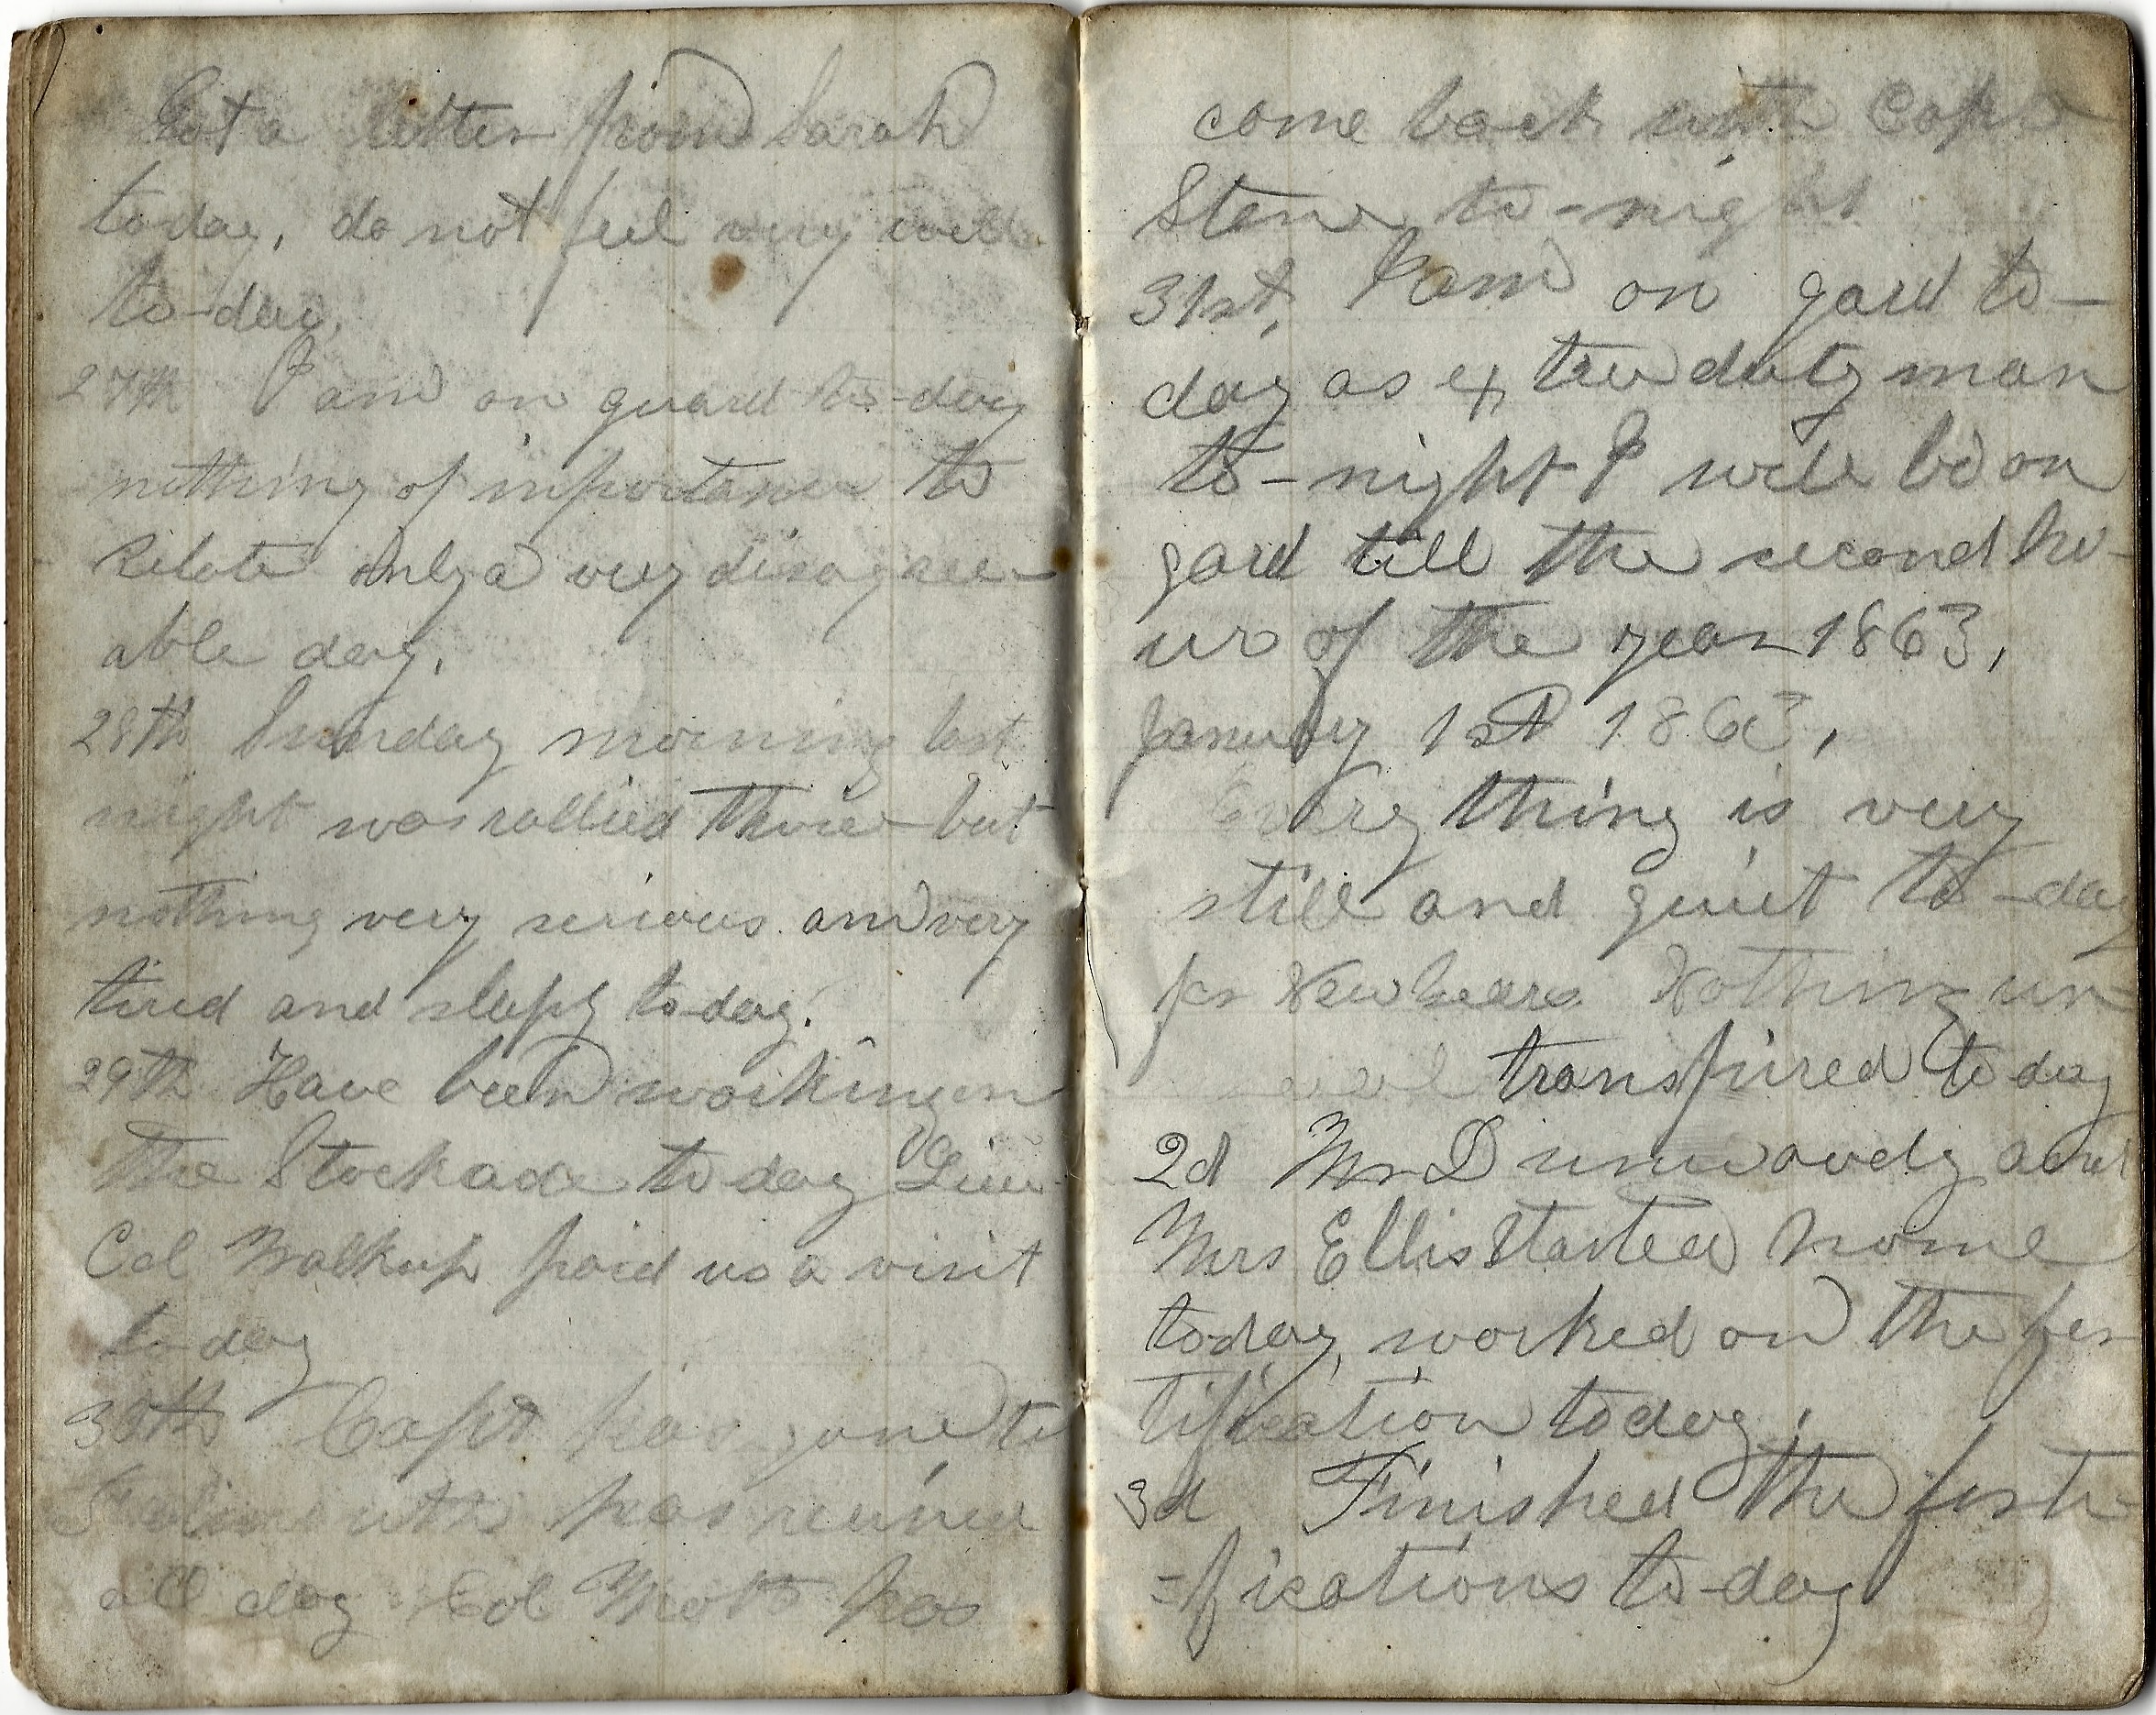 Got a letter from Sarah
today, do not feel very well
to-day,
27th I am on guard to-day
nothing of importance to
Relate Only a very disagree-
able day.
28th Sunday morning last
night was rallied thrice but
nothing very serious and very
tired and sleepy to-day.
29th Have been working on
the Stockade to day Lieu
Col Walkup paid us a visit
to-day
30th Capt has gone to
has rained
all day Col Mott has
come back with Capt
Stone to-night
31st, I am on gard to-
day as extra duty man
to-night I will be on
gard till the second ho-
ur of the year 1863,
January 1st 1863,
Every thing is very
still and quiet to-day
for New Years Nothing un-
usual transpired to day
2d Mr Dunwoody and
Mrs Ellis Started home
today, worked on the for
tification to day,
3d Finished the forti
=fications to-day